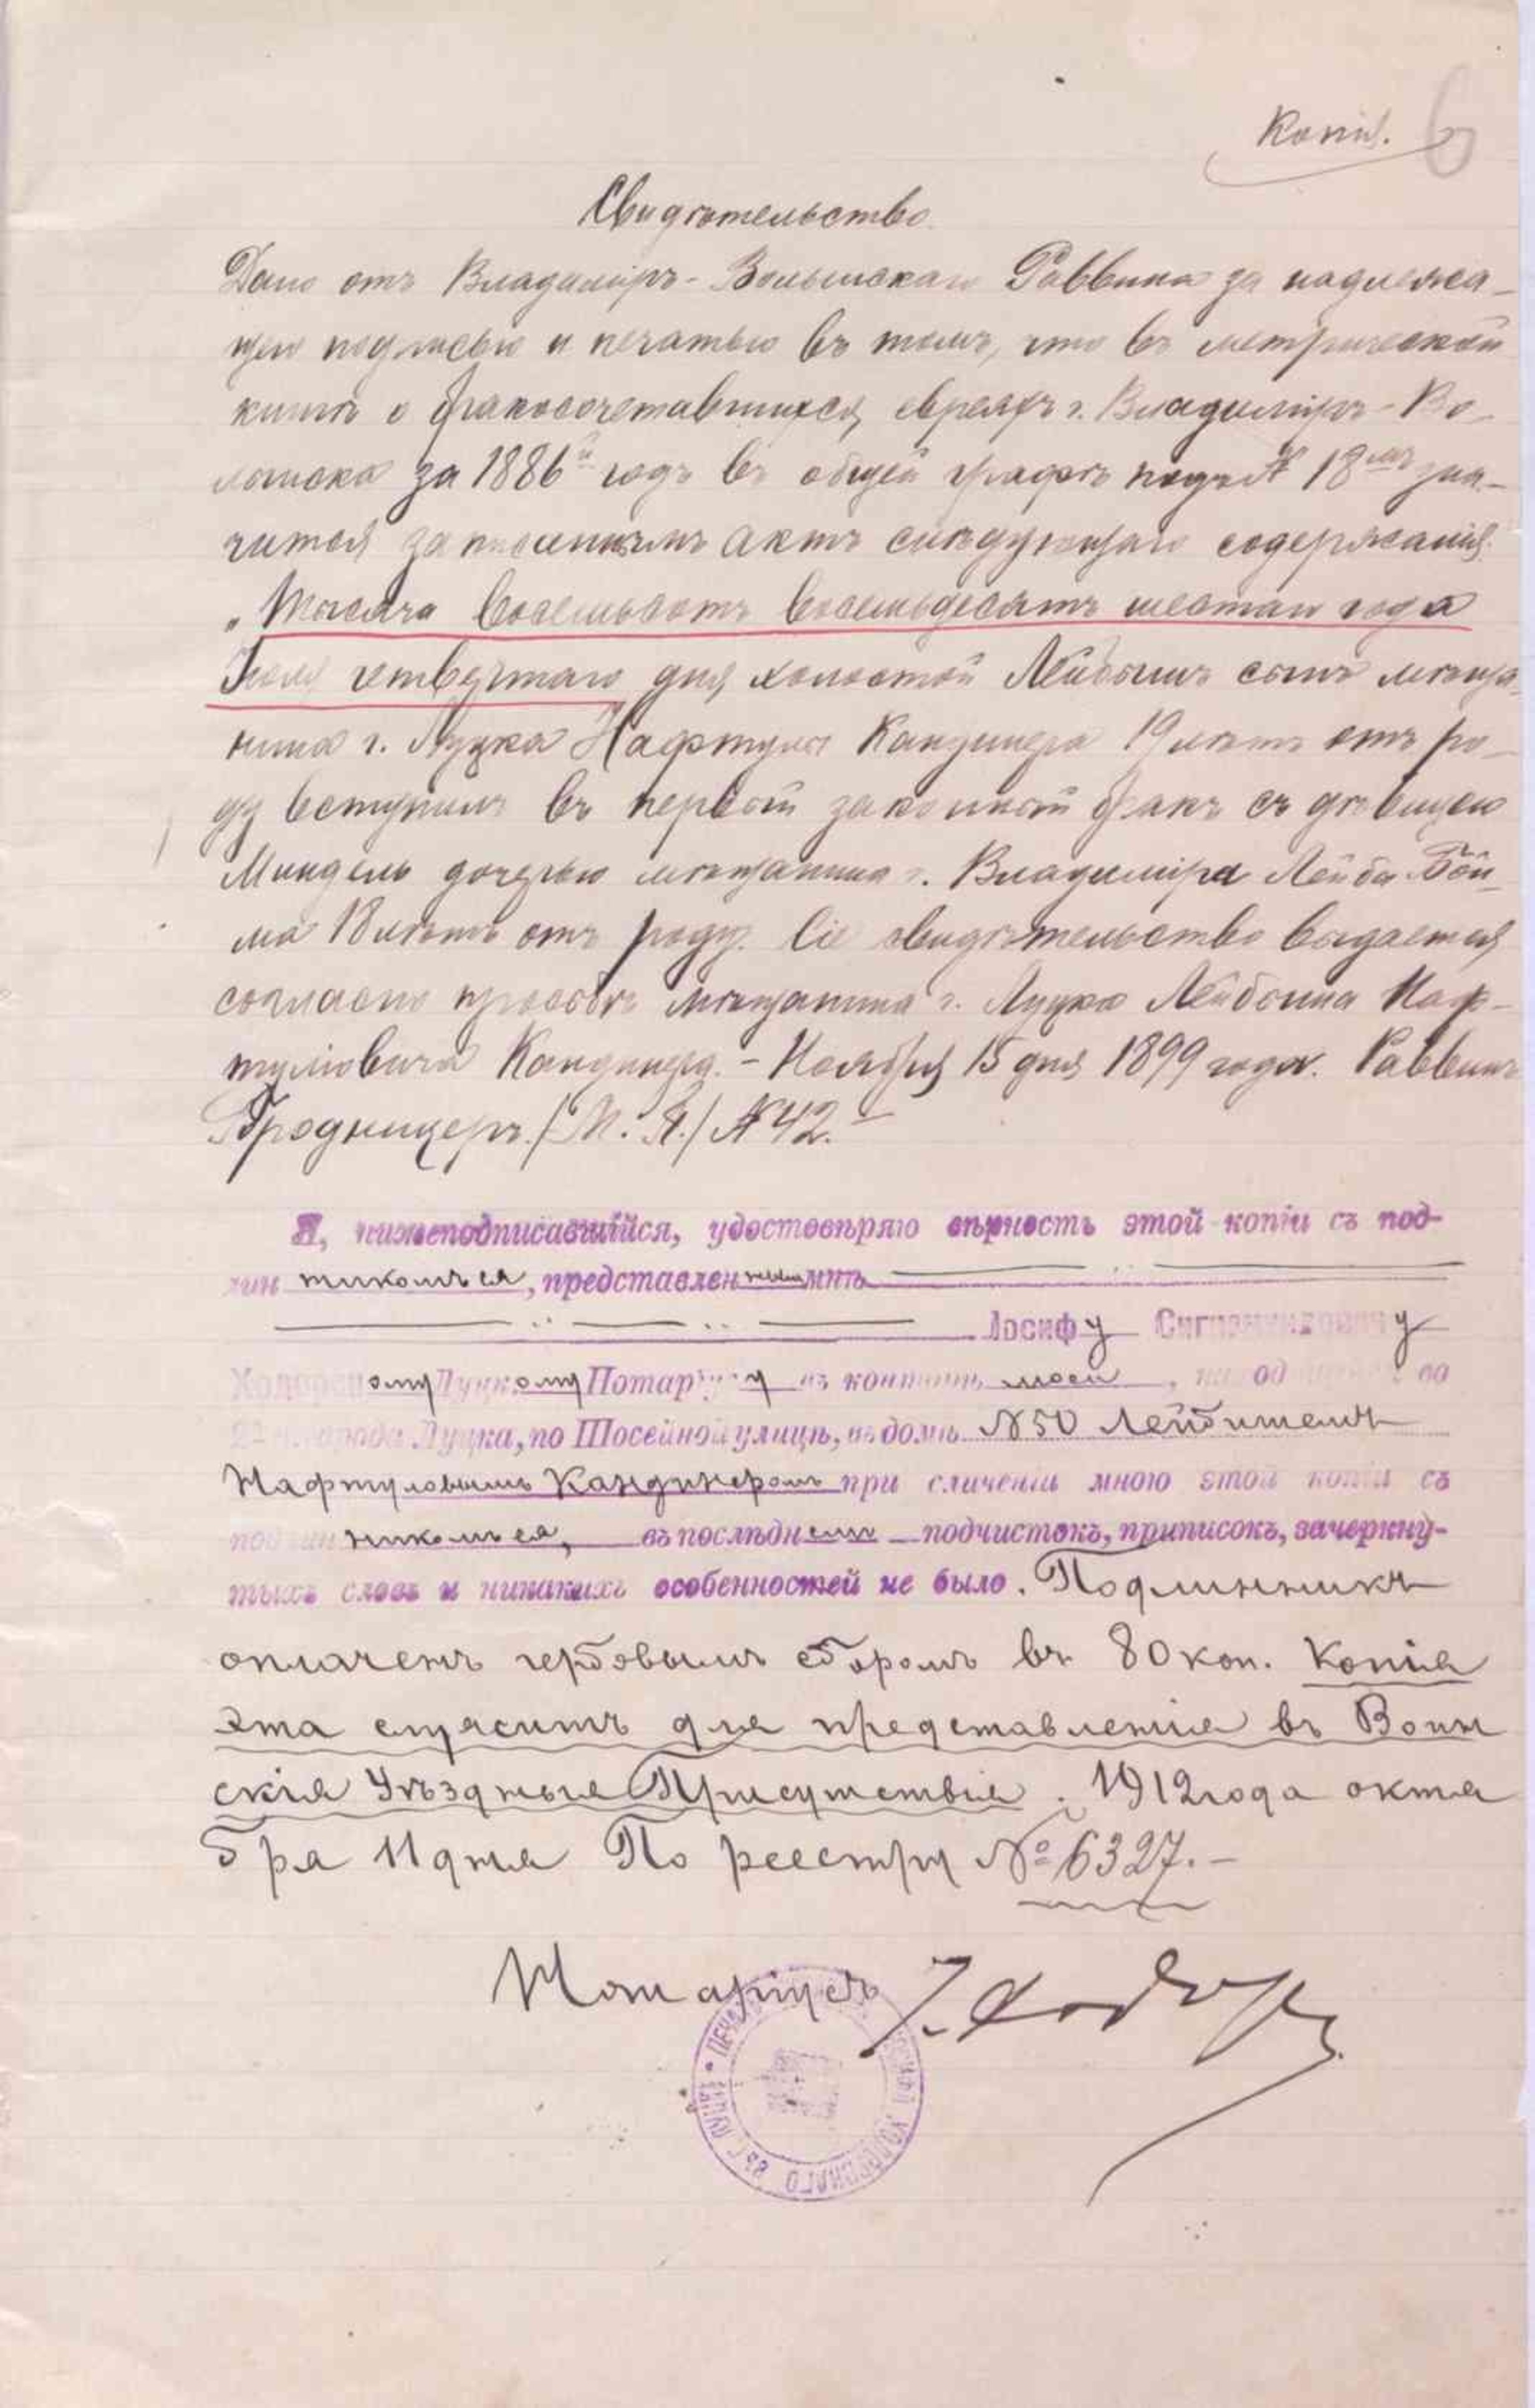 Копія. 6
Свидѣтельство.
Дано отъ Владиміръ-Волынскаго Раввина за надлежа-
щею подписью и печатью въ томъ, что въ метрической
книгѣ о бракосочетавшихся евреяхъ г. Владиміръ-Во-
лынска за 1886й годъ въ общей графѣ подъ № 18мъ зна-
чится записаннымъ актъ слѣдующаго содержанія:
„Тысяча восемьсотъ восемьдесятъ шестаго года
Іюля четвертаго дня, холостой Лейбишъ сынъ мѣща-
нина г. Луцка Нафтулы Кандинера 19 лѣтъ отъ ро-
ду вступилъ въ первый законный бракъ съ дѣвицею
Миндель дочерью мѣщанина г. Владиміра Лейба Бой-
ма 18 лѣтъ отъ роду. Сіе свидѣтельство выдается
согласно просьбѣ мѣщанина г. Луцка Лейбиша Наф-
туловича Кандинера. - Ноября 15 дня 1899 года. Раввинъ
Бродницеръ. /М. П./ № 42.
Я, нижеподписавшійся, удостовѣряю вѣрность этой копіи съ под-
линникомъ ея, представленнымъ мнѣ
Іосифу Сигизмундовичу
Ходорскому Луцкому Нотаріусу въ конторѣ моей, во
2 ч. города Луцка, по Шосейной улицѣ, въ домѣ № 50 Лейбишемъ
Нафтуловымъ Кандинеромъ при сличеніи мною этой копіи съ
подлинникомъ ея, въ послѣднемъ подчистокъ, приписокъ, зачеркну-
тыхъ словъ и никакихъ особенностей не было. Подлинникъ
оплаченъ гербовымъ сборомъ въ 80 коп. Копія
эта служитъ для представленія въ Воин
скія Уѣздныя Присутствія. 1912 года октя
бря 11 дня По реестру № 6327.-
Нотаріусъ І. Ходор